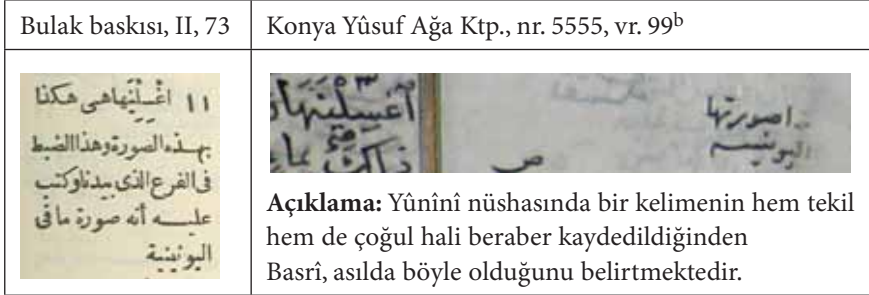 Bulak baskısı, II, 73
Konya Yûsuf Ağa Ktp., nr. 5555, vr. 99b
١١ اغْسِلْنَهَا هى هكذا
بهذه الصورة وهذا الضبط
فى الفرع الذى بيدنا وكتب
عليه أنه صورة ما فى
اليونينية
صورتها
اليونينيه
ص
Açıklama: Yûnînî nüshasında bir kelimenin hem tekil
hem de çoğul hali beraber kaydedildiğinden
Basrî, asılda böyle olduğunu belirtmektedir.